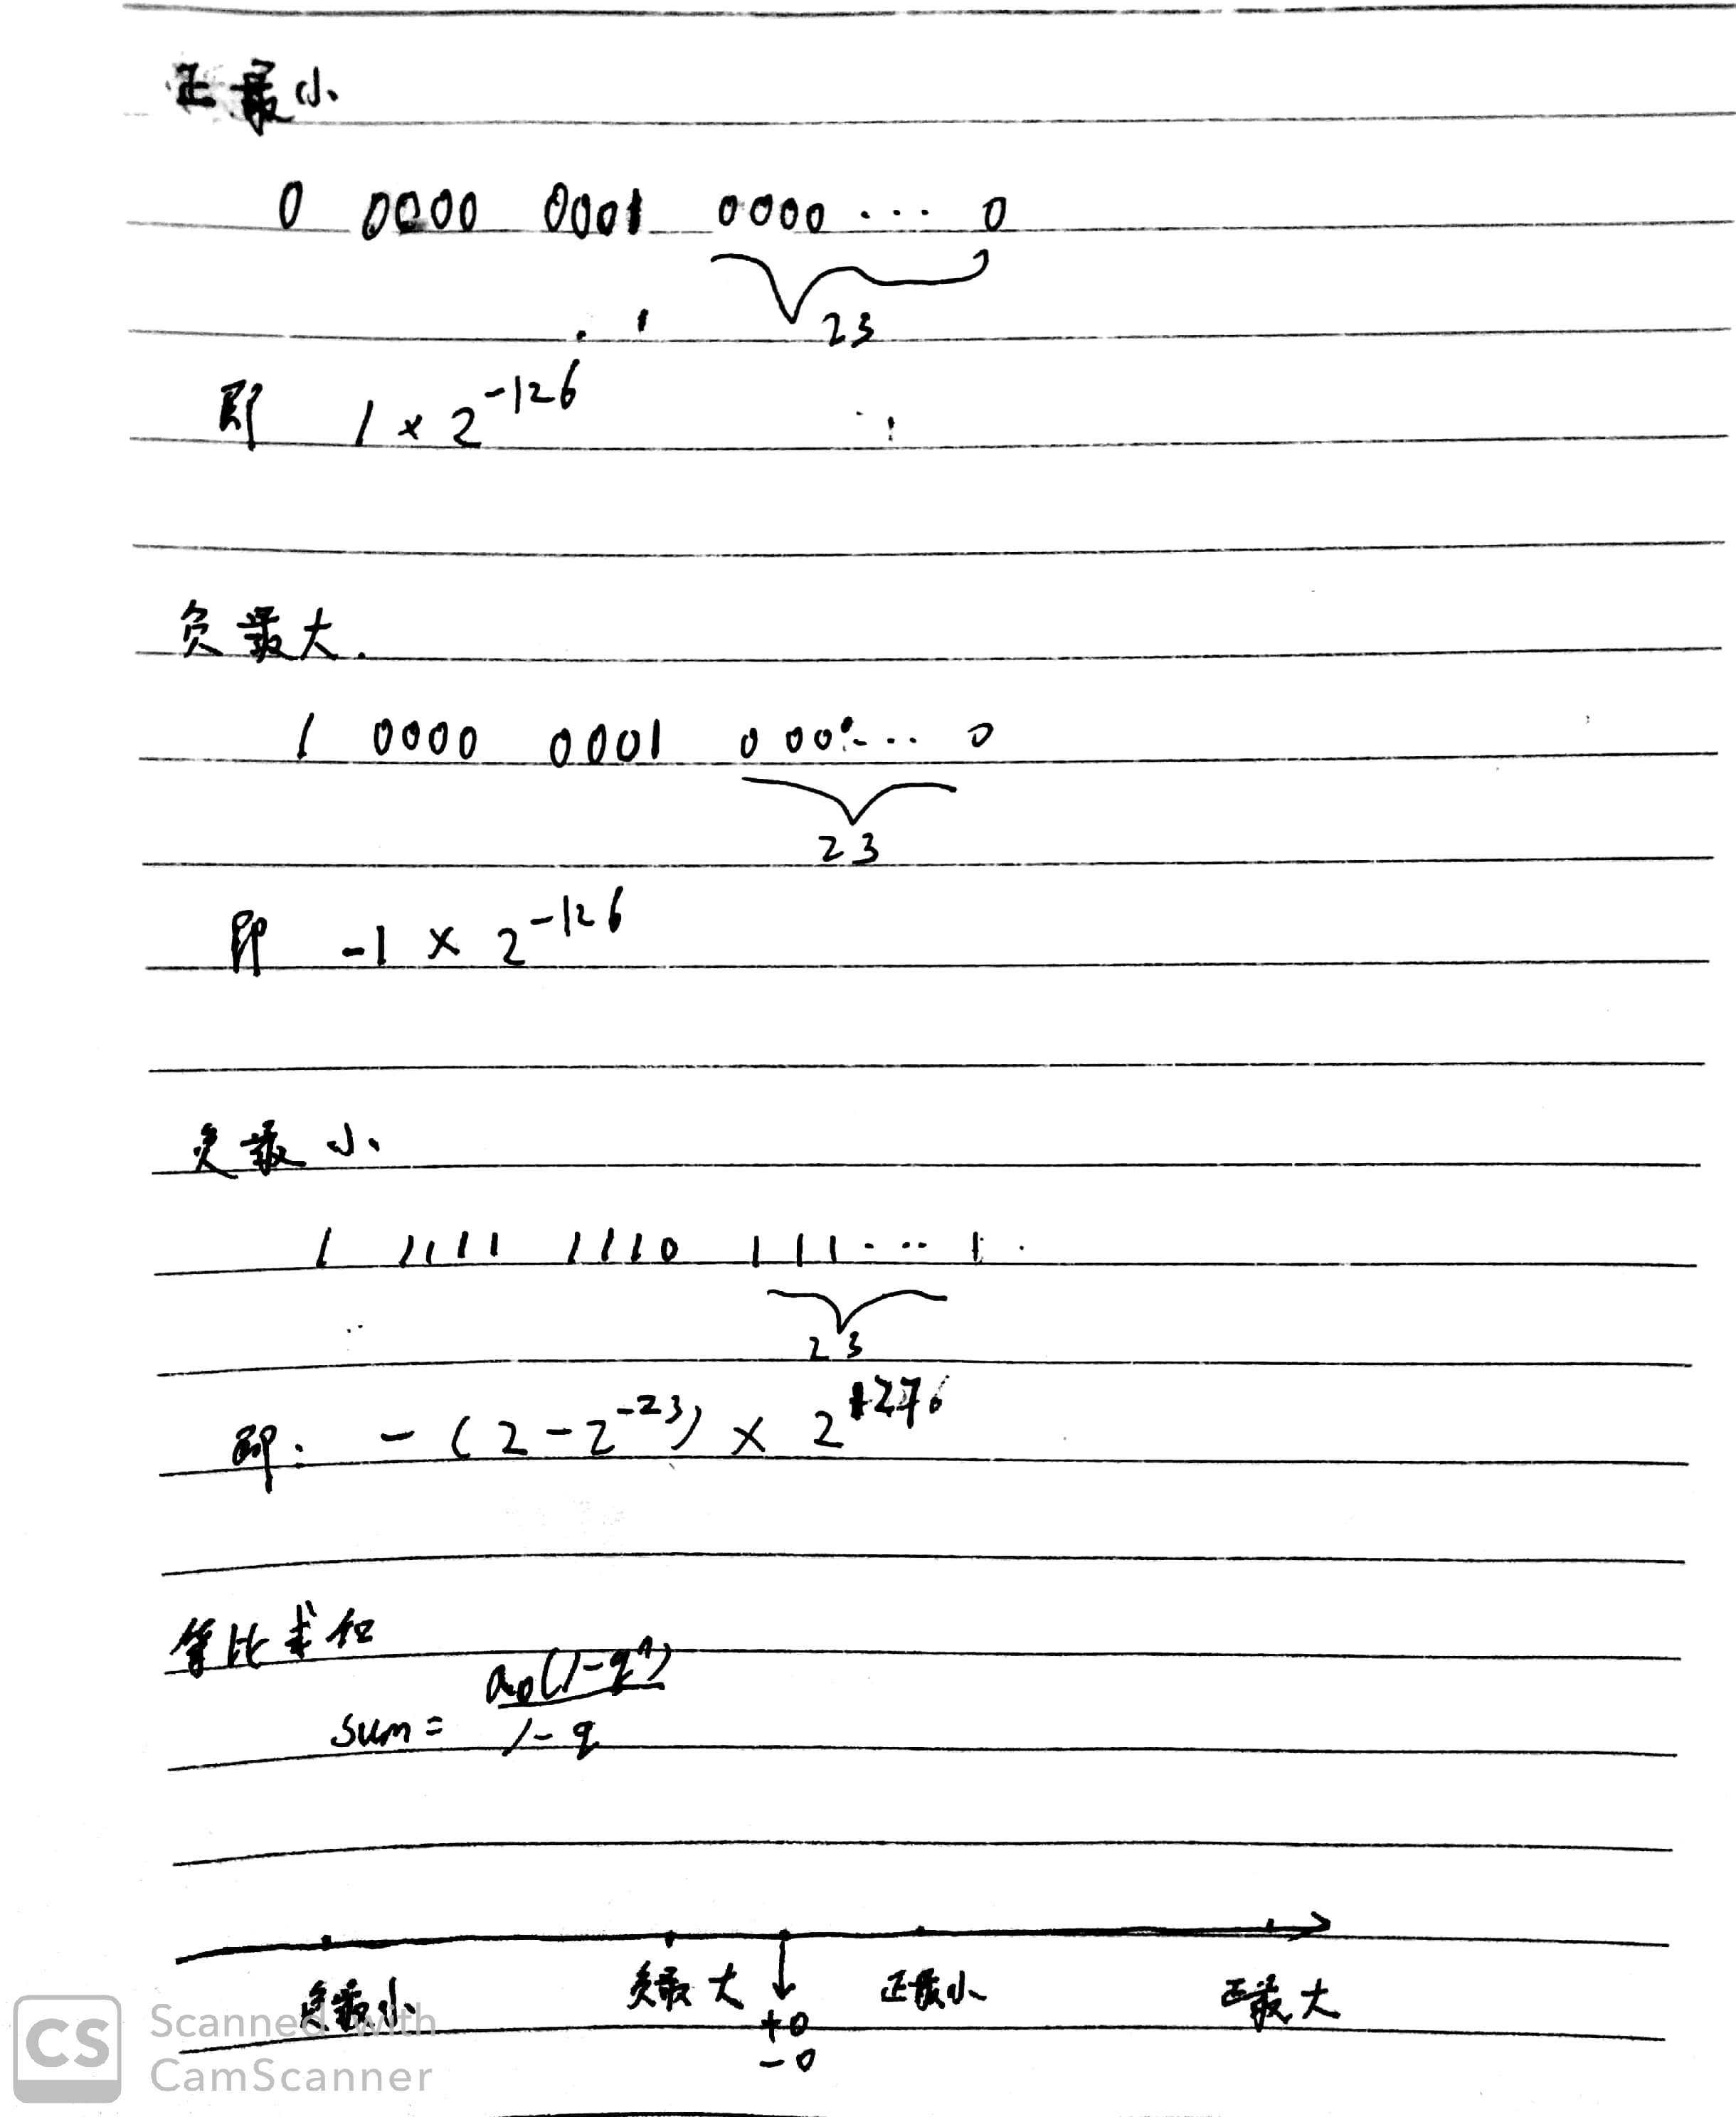 正最小
0 0000 0001 0000 ... 0
23
即 1 × 2^-126
负最大.
1 0000 0001 000... 0
23
即 -1 × 2^-126
负最小
1 1111 1110 111... 1
23
即: -(2-2^-23) ×
等比求和
sum = a0(1-q^n) / 1-q
负最小 负最大 ↓ 正最小 正最大
+0
-0
CS Scanned with
CamScanner